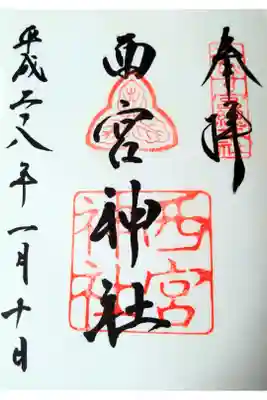 奉拝
西宮神社
西宮
神社
平成二八年一月十日